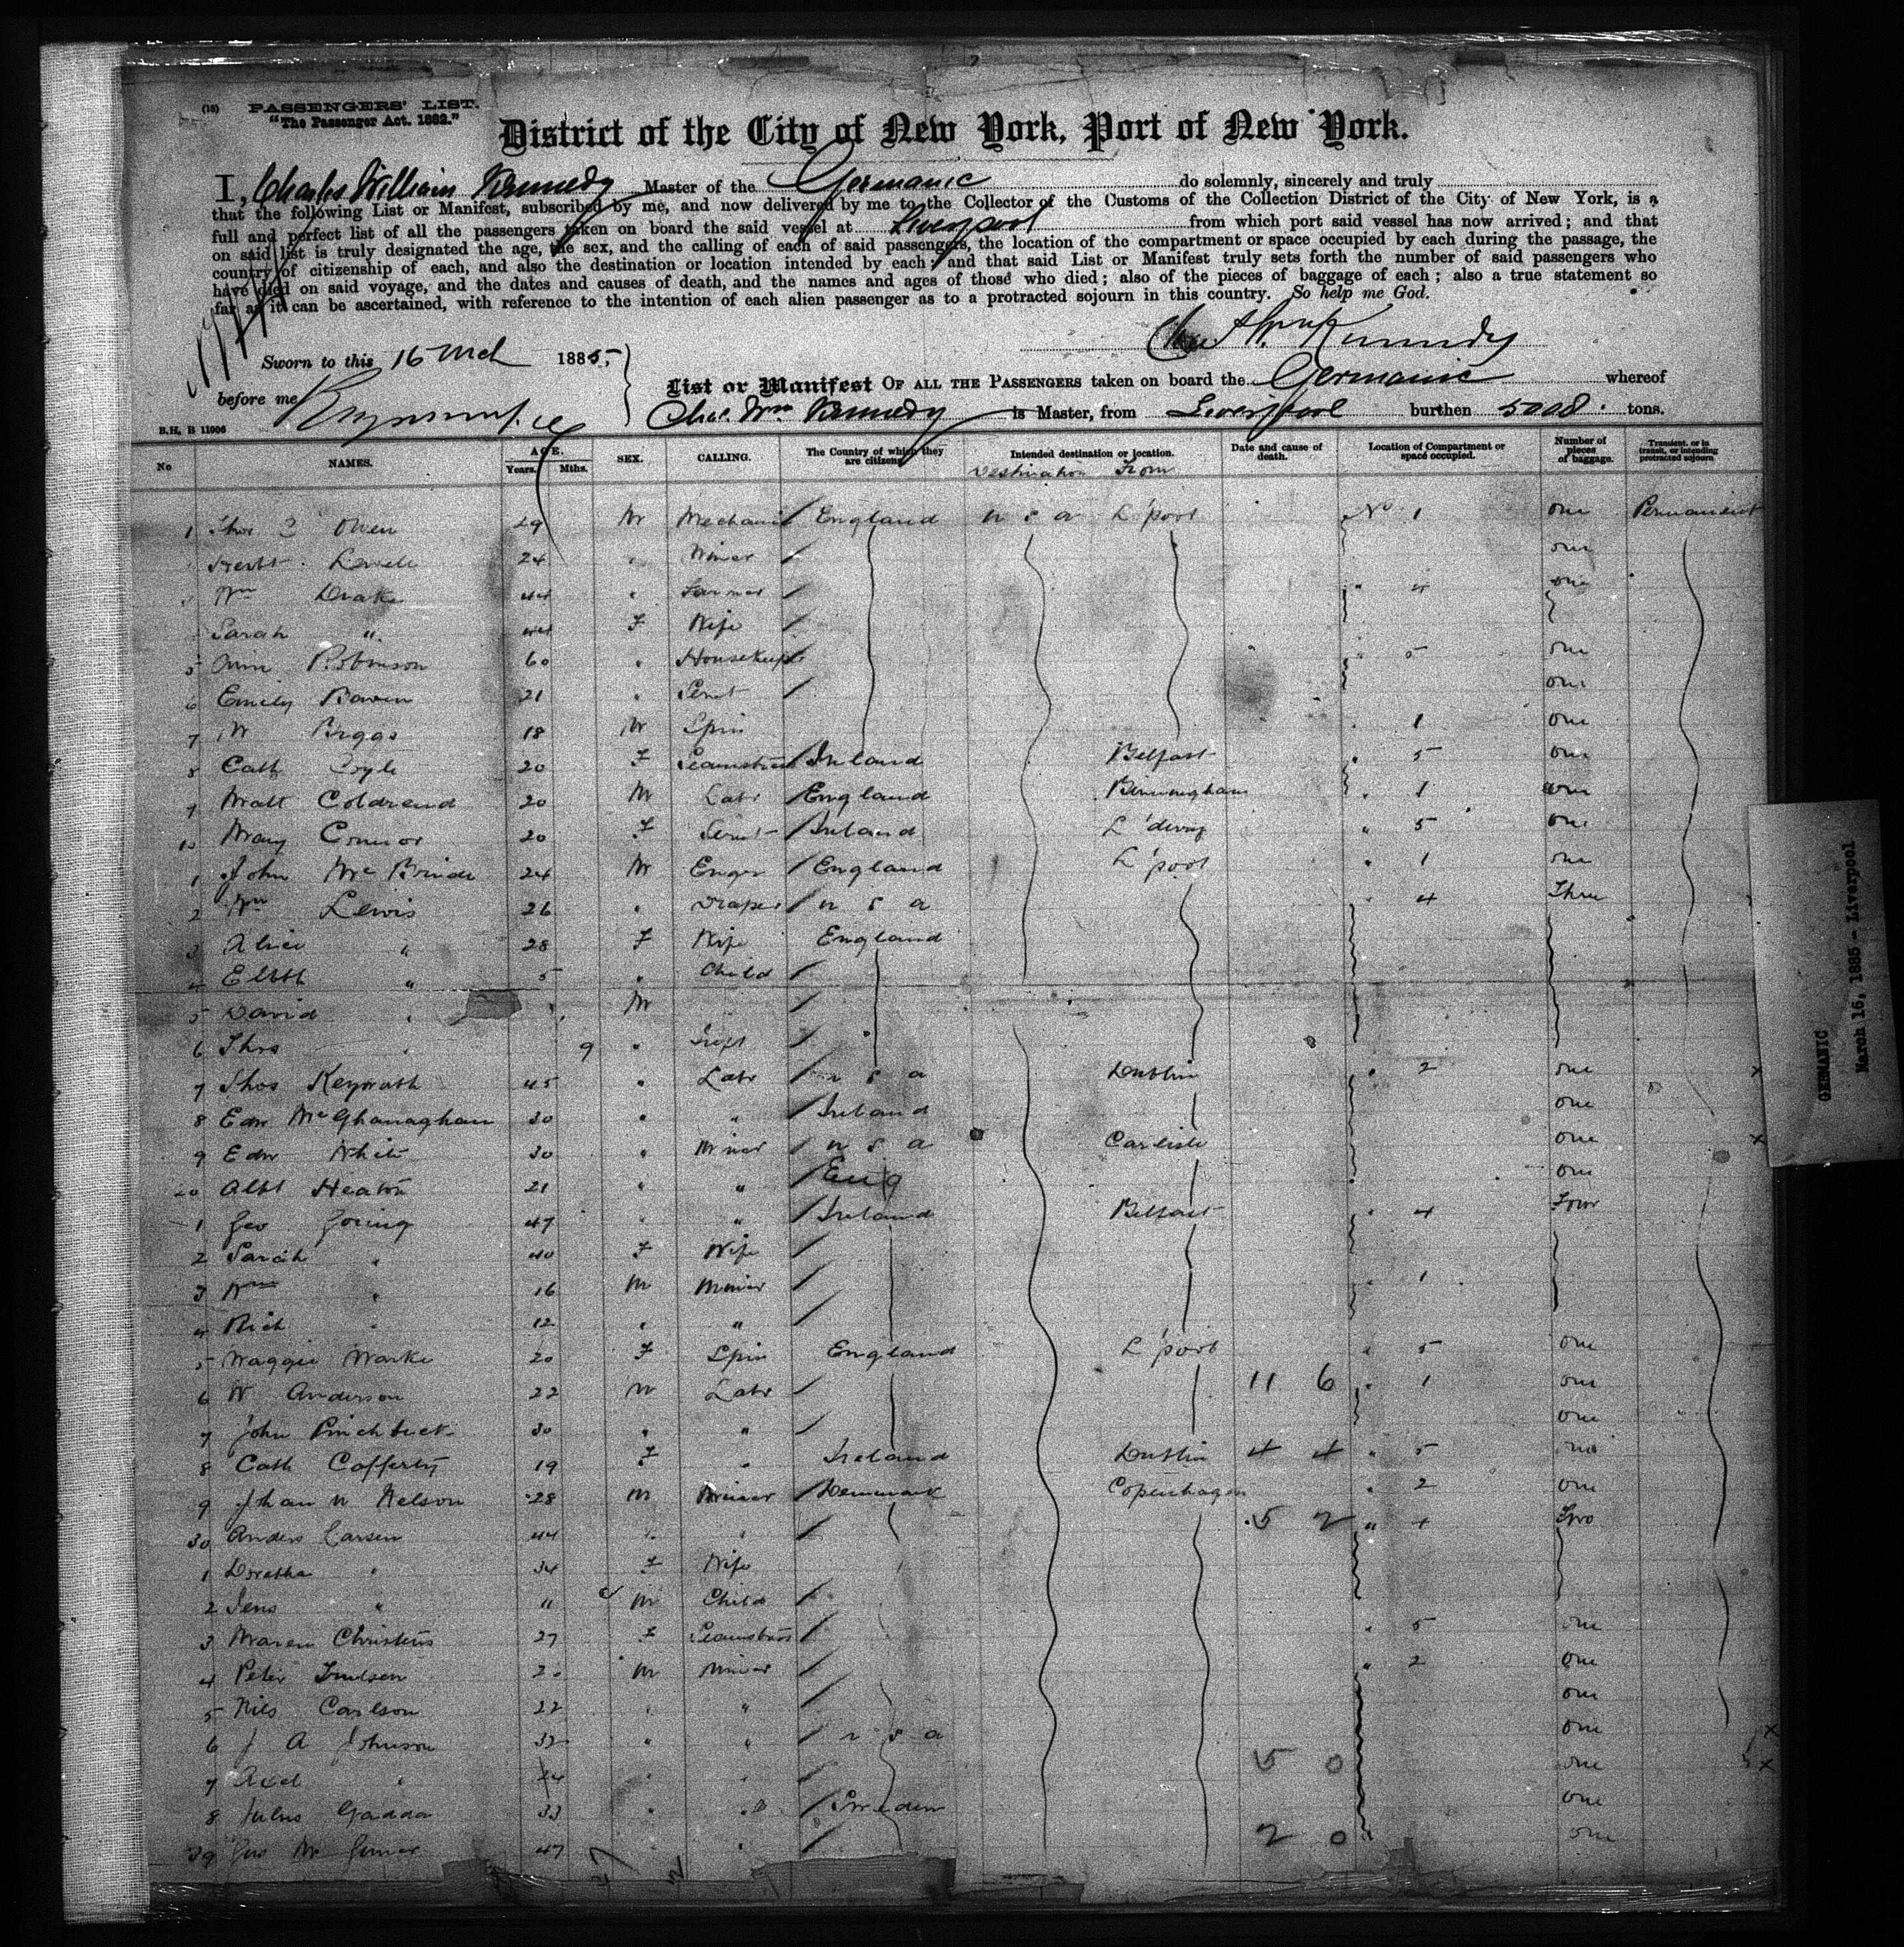 (15) PASSENGERS' LIST.
"The Passenger Act. 1882."
District of the City of New York, Port of New York.
I, Charles William Kennedy Master of the Germanic do solemnly, sincerely and truly
that the following List or Manifest, subscribed by me, and now delivered by me to the Collector of the Customs of the Collection District of the City of New York, is a
full and perfect list of all the passengers taken on board the said vessel at Liverpool from which port said vessel has now arrived; and that
on said list is truly designated the age, the sex, and the calling of each of said passengers, the location of the compartment or space occupied by each during the passage, the
country of citizenship of each, and also the destination or location intended by each; and that said List or Manifest truly sets forth the number of said passengers who
have died on said voyage, and the dates and causes of death, and the names and ages of those who died; also of the pieces of baggage of each; also a true statement so
far as it can be ascertained, with reference to the intention of each alien passenger as to a protracted sojourn in this country. So help me God.
Kennedy
Sworn to this 16 Mch 1885,
before me
List or Manifest OF ALL THE PASSENGERS taken on board the Germanic whereof
Chas. Wm Kennedy is Master, from Liverpool burthen 5008 tons.
B.H. B 11006
No NAMES. AGE. Years. Mths. SEX. CALLING. The Country of which they are citizens. Intended destination or location. Date and cause of death. Location of Compartment or space occupied. Number of pieces of baggage. Transient, or in transit, or intending protracted sojourn
Destination From
1 Thos Owen 29 M Mechanic England U S A L'pool No 1 one Permanent
Herbt 24 " Miner one
Wm Drake 44 " Farmer " 4 one
Sarah " F Wife
5 Ann Robinson 60 " Housekeep " 5 one
6 Emily Bowen 21 " Servt one
7 W Briggs 18 M Spin " 1 one
8 Cath Coyle 20 F Seamstress Ireland Belfast " 5 one
9 Matt Coldrend 20 M Labr England Birmingham " 1 one
10 Mary Connor 20 F Servt Ireland L'derry " 5 one
1 John McBride 24 M Enger England L'pool " 1 one
2 Wm Lewis 26 " Draper U S A " 4 Three
3 Alice " 28 F Wife England
4 Elbth " 5 " Child
5 David " " M
6 Thos " 9 " Inft
7 Thos 45 " Labr U S A Dublin " 2 one
8 Edw McGhanaghan 30 " " Ireland one
9 Edw White 30 " Miner U S A Carlisle one
20 Albt Heaton 21 " " Eng one
1 Geo Goring 47 " " Ireland Belfast " 4 Four
2 Sarah " 40 F Wife
3 Wm " 16 M Miner " 1
4 Rich " 12 " "
5 Maggie 20 F Spin England L'pool " 5 one
6 W Anderson 22 M Labr 11 6 " 1 one
7 John Pinchbeck 30 " " one
8 Cath Cafferty 19 F " Ireland Dublin 4 4 " 5 one
9 Johan N Nelson 28 M Miner Denmark Copenhagen " 2 one
30 Anders Larsen 44 " " 5 2 " 4 Two
1 Dorethe " 34 F Wife
2 Jens " 11 M Child
3 Maren 27 F Seamstress " 5 one
4 Peter M Miner " 2 one
5 Nils Carlson 22 " " one
6 J A Johnson 32 " " U S A one
7 Axel " 24 " " 5 0 one
8 Julus Gadda 33 " " Sweden one
39 47 " 2 0 one
GERMANIC
March 16, 1885 - Liverpool